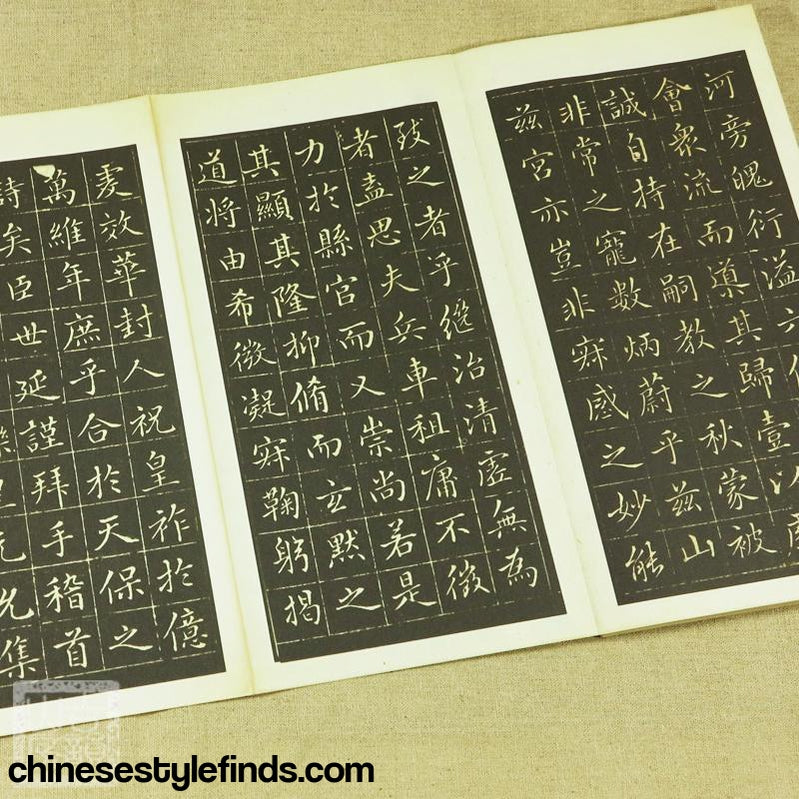 河旁魄衍溢六
會衆流而導其歸壹以
誠自持在嗣教之秋蒙被
非常之寵數炳蔚乎茲山
茲宮亦豈非寂感之妙能
致之者乎繼治清虛無為
者盍思夫兵車租庸不徵
力於縣官而又崇尚若是
其顯其隆抑脩而玄默之
道將由希微凝寂鞠躬揭
虔效華封人祝皇祚於億
萬維年庶乎合於天保之
詩矣臣世延謹拜手稽首
集
chinesestylefinds.com